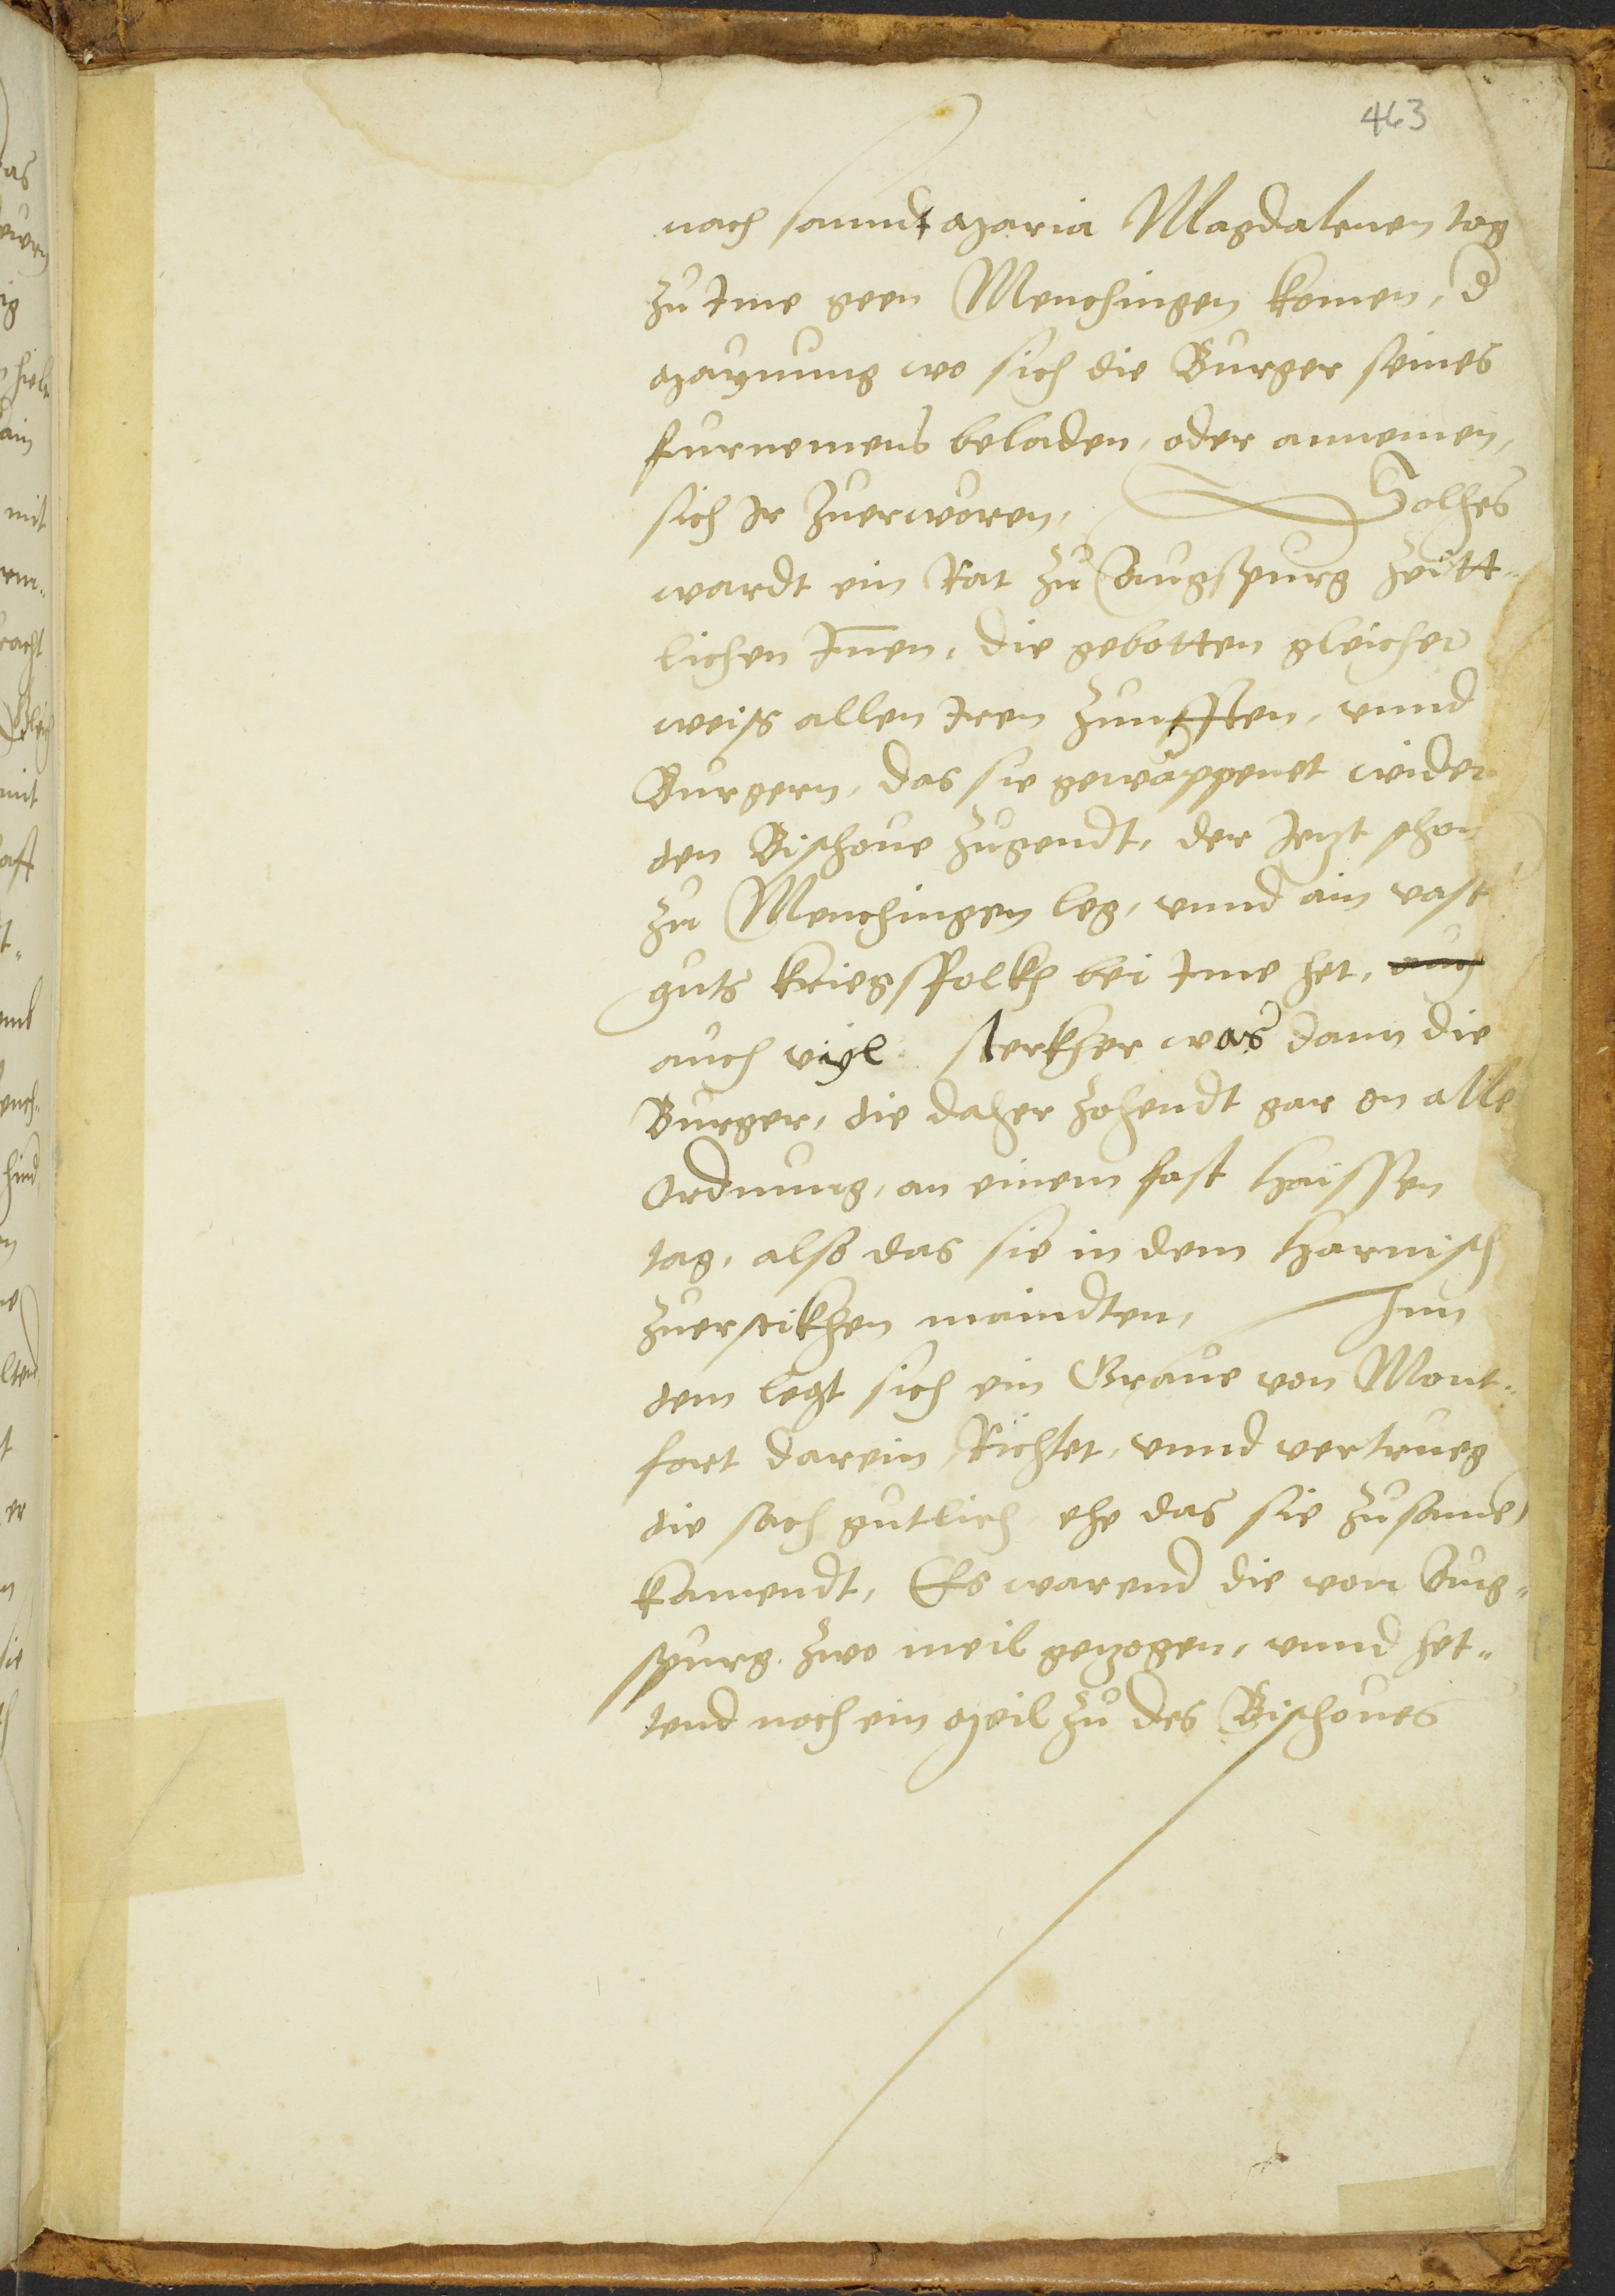 463
nach sannt Maria Magdalenen tag
zu Ime geen Menchingen komen, d
maynung wo sich die Burger seines
furnemens beladen, oder annemen,
sich Ir zuerweren, Solhes
wardt ein Rat zu Augspurg zeitt-
lichen Innen, die gebotten gleicher
weiß allen Iren Zunfften, vnnd
Burgern, das sie gewappenet wider
den Bischoue zugendt, der Jetzt schon
zu Menchingen leg, vnnd ain vast
guts kriegsfolkh bei Ime het, auch
auch viyl sterkher was dann die
Burger, die daher zohendt gar on alle
Ordnung, an einem fast haissen
tag, also das sie in dem harnisch
zuerstikhen maindten, Inn
dem legt sich ein Graue von Mont-
fort darein, Richtet, vnnd vertrueg
die sach gutlich, ehe das sie zusame
kamendt, Es warend die von Aug-
spurg zwo meil gezogen, vnnd het-
tend noch ein meil zu des Bischoues